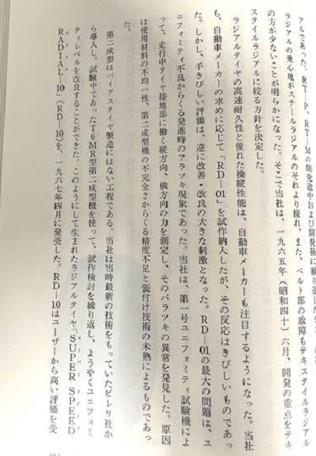 アルであった。RTP、RTMの街を走るおよび開発後に繰り
ラジアルの乗心地がスチールラジアルのそれより優れ、また、ベルト部の故障もテキスタイルラジアル
の方が少ないことが明らかになった。そこで当社は、一九六五年（昭和四十）六月、開発の重点をテキ
スタイルラジアルに絞る方針を決定した。
ラジアルタイヤの高速耐久性と優れた操縦性能は、自動車メーカーも注目するようになった。当社
も、自動車メーカーの求めに応じて「RD―01」を試作納入したが、その反応はきびしいものであっ
た。しかし、手きびしい評価は、逆に改善・改良の大きな刺激となった。RD―01の最大の問題は、ユ
ニフォミティ不良からくる発進時のフラツキ現象であった。当社は、第一号ユニフォミティ試験機によ
って、走行中タイヤ接地部に働く縦方向、横方向の力を測定し、そのバラツキの異常を発見した。原因
は使用材料の不均一性、第二成型機の不完全さからくる精度不足と張付け技術の未熟によるものであっ
た。
第二成型はバイアスタイヤ製造にはない工程である。当社は当時最新の技術をもっていたピレリ社か
ら導入し、試験中であったT6MR型第二成型機を使って、試作検討を繰り返し、ようやくユニフォミ
ティレベルを改良することができた。このようにして生まれたラジアルタイヤ「SUPER SPEED
RADIAL―10」（RD―10）を、一九六七年四月に発売した。RD―10はユーザーから高い評価を受